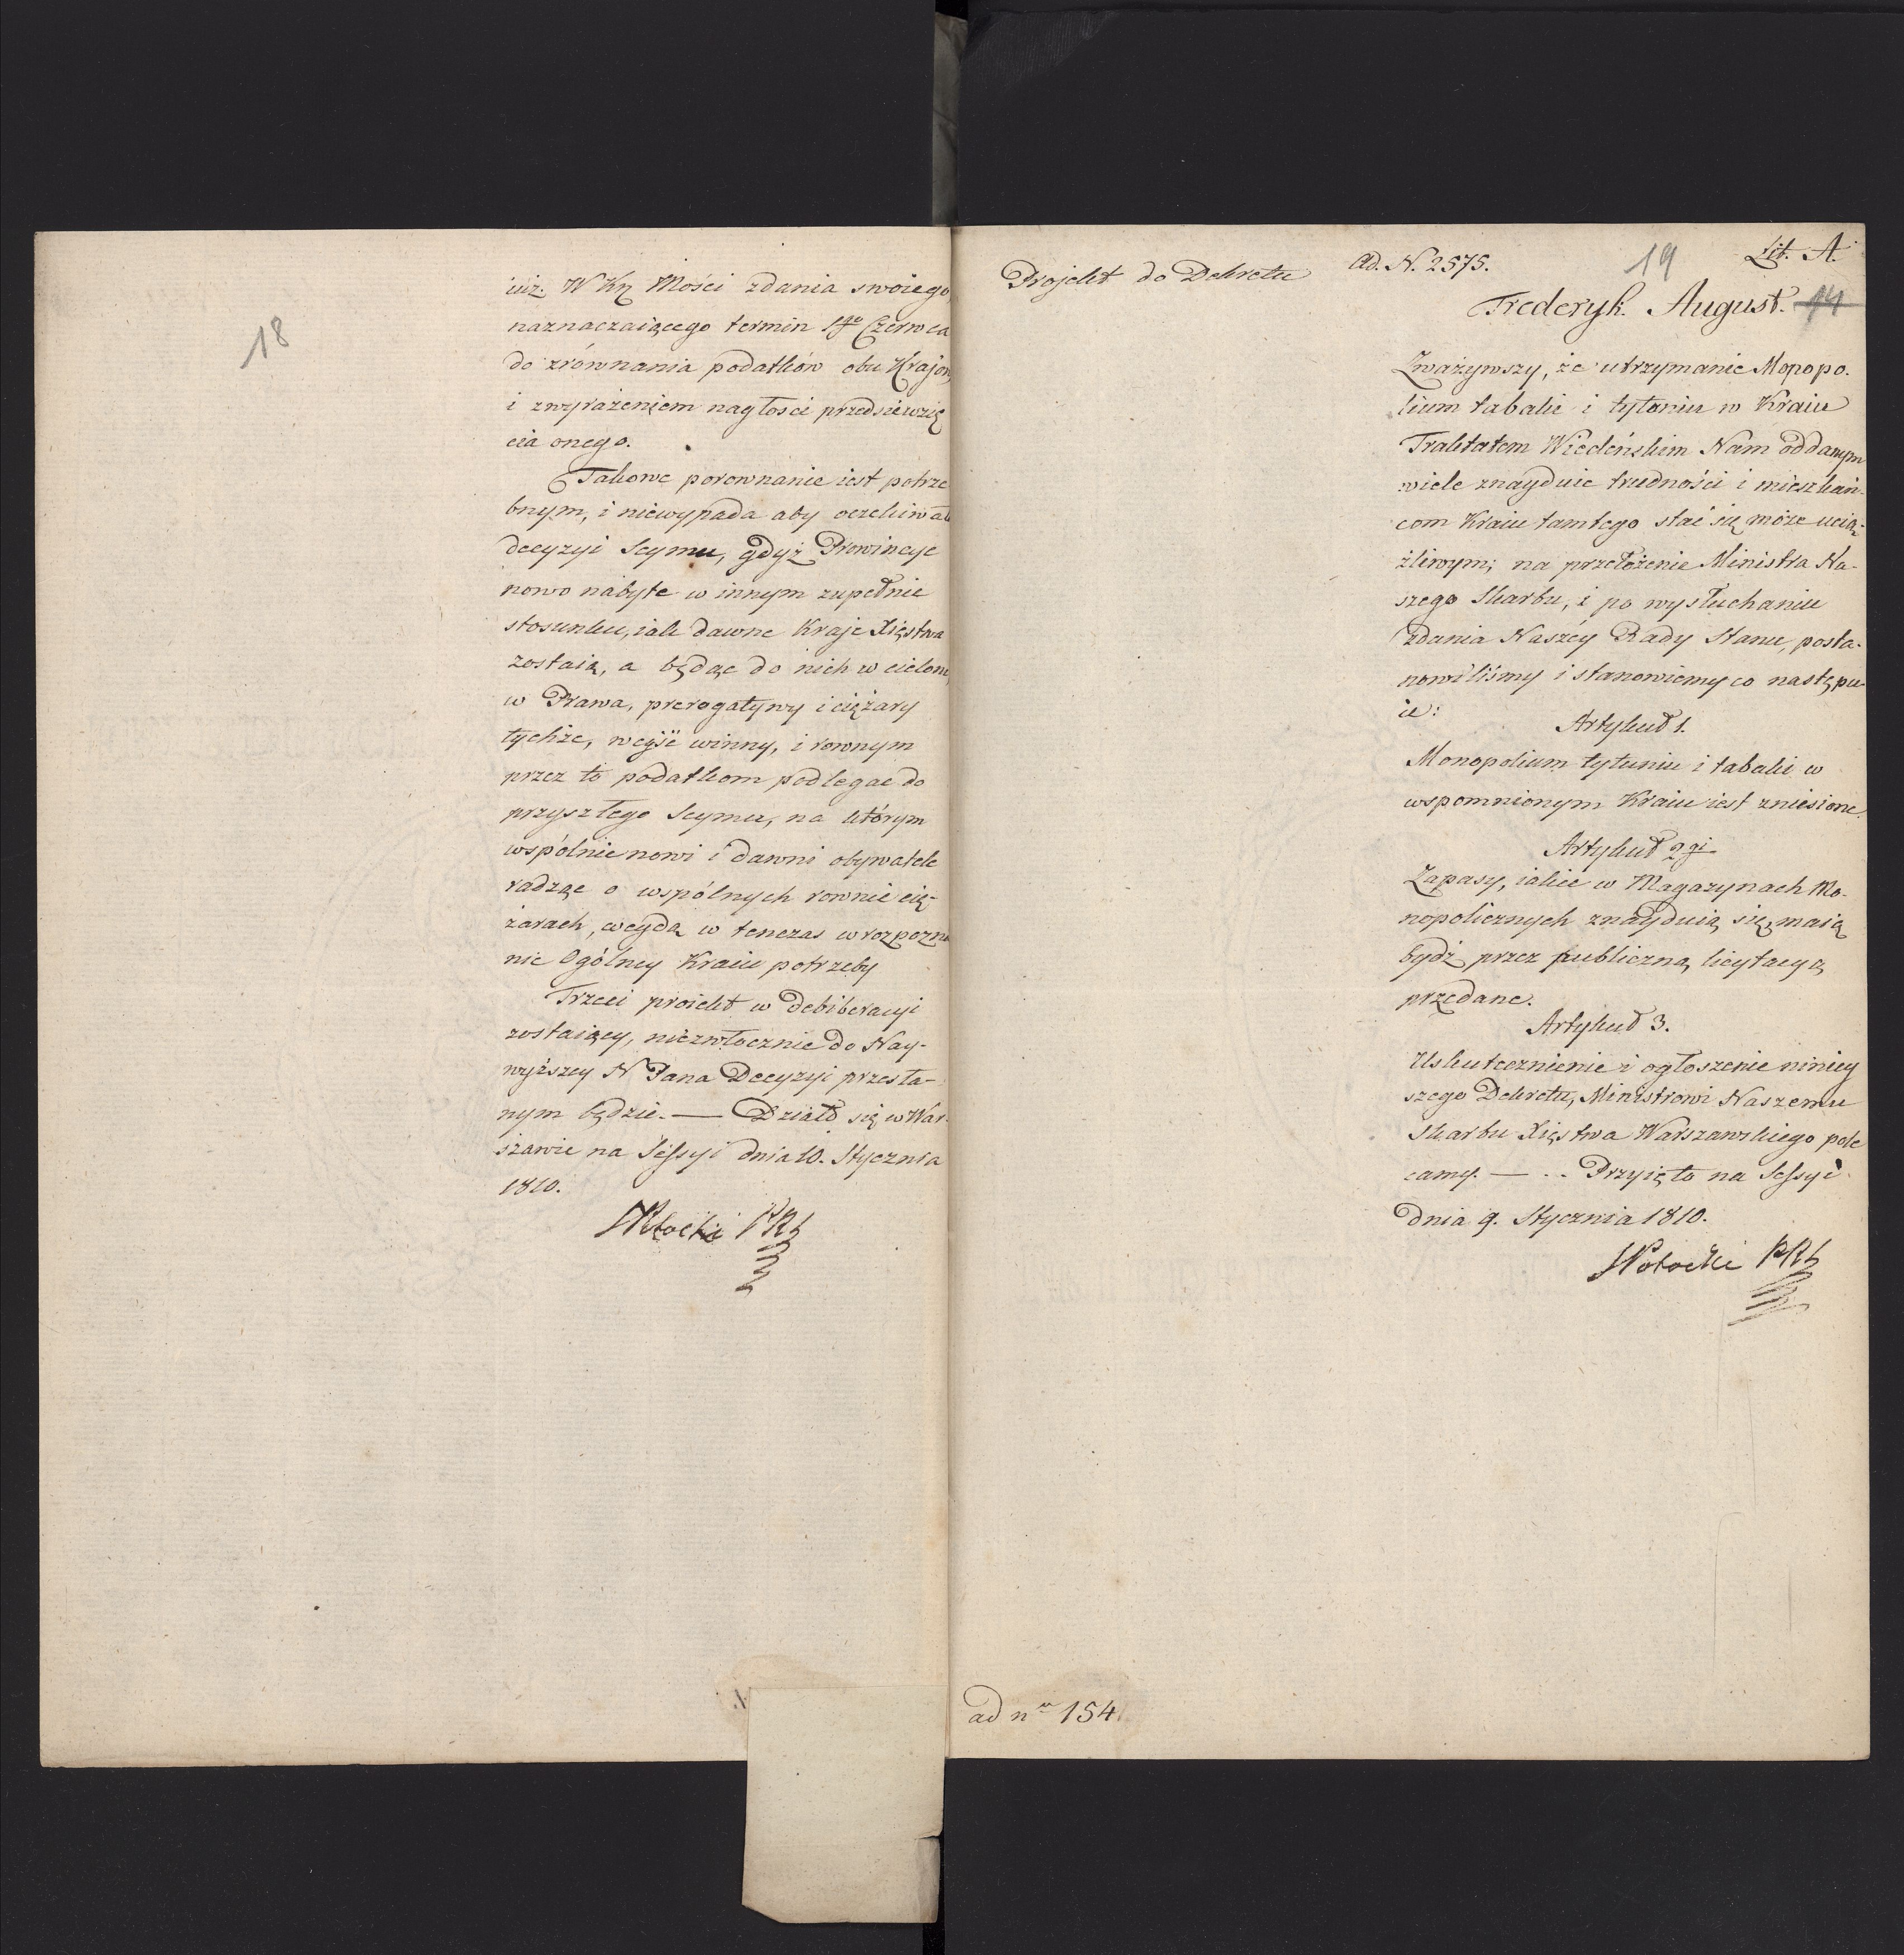 18
iuż. W Kr Mości zdania swoiego,
naznaczaiącego termin 1go Czerwca
do zrównania podatków obu Krajow,
i z wyrażeniem nagłości przedsiewzię
cia onego.
Takowe porownanie iest potrze
bnym, i niewypada aby oczekiwać
decyzyi Seymu, gdyż Prowincye
nowo nabyte w innym zupełnie
stosunku, iak dawne Kraje Xięstwa
zostaią, a będąc do nich wcielone,
w Prawa, prerogatywy i ciężary
tychże, weyść winny, i rownym
przez to podatkom podlegac do
przyszłego Seymu, na którym
wspólnie nowi i dawni obywatele
radząc o wspólnych rownie cię-
żarach, weydą w tenczas w rozpozna
nie Ogólney Kraiu potrzeby
Trzeci proiekt w debiberacyi
zostaiący, niezwłocznie do Nay-
wyższey N Pana Decyzyi przesła-
nym będzie. — Działo się w War-
szawie na Sessyi dnia 10. Stycznia
1810.
Projekt do Dekretu
Ad. N. 2575.
19
Lit. A.
Frederyk. August. 14
Zważywszy, że utrzymanie Mopopo.
lium tabaki i tytoniu w Kraiu
Traktatem Wiedeńskim Nam oddanym
wiele znayduie trudności i mieszkań-
com Kraiu tamtego stać się może ucią-
żliwym; na przełożenie Ministra Na-
szego Skarbu, i po wysłuchaniu
zdania Naszéy Rady Stanu, posta-
nowiliśmy i stanowiemy co następu-
ie:
Artykuł 1.
Monopolium tytuniu i tabaki w
wspomnionym Kraiu iest zniesione.
Artykuł 2gi
Zapasy, iakie w Magazynach Mo-
nopolicznych znayduią się, maią
bydź przez publiczną licytacyą
przedane.
Artykuł 3.
Uskutecznienie i ogłoszenie niniey
szego Dekretu, Ministrowi Naszemu
Skarbu Xięstwa Warszawskiego pole
camy. — .. Przyięto na Sessyi
dnia 9. Stycznia 1810.
SPotocki PRS
ad nr 154